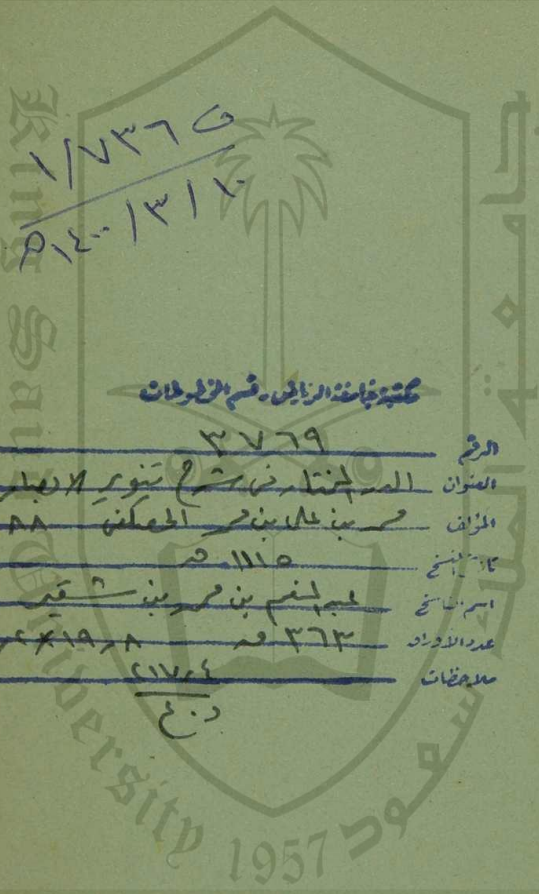 ف ١/٧٣٦
١٤٠٠/٣/١٠ هـ
مكتبة جامعة الرياض - قسم المخطوطات
الرقم ٣٧٦٩
العنوان الدر المختار في شرح تنوير الابصار
المؤلف محمد بن علي بن محمد الحصكفي ٨٨
تاريخ النسخ ١١١٥ هـ
اسم الناسخ عبد المنعم بن محمد بن شقير
عدد الأوراق ٣٦٣
ملاحظات ٢١٧٫٤
King Saud University
1957
جامعة الملك سعود